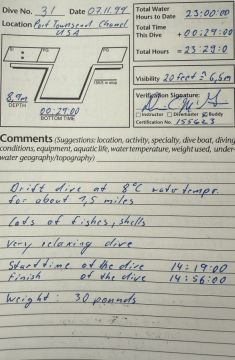 Dive No. 31 Date 07.11.99
Location Port Townsend Channel
USA
Total Water
Hours to Date 23:00:00
Total Time
This Dive + 00:29:00
Total Hours = 23:29:0
SI PG PG
8,9m
DEPTH
00:29:00
BOTTOM TIME
Visibility 20 feet ≈ 6,5m
Verification Signature:
Instructor Divemaster Buddy
Certification No. 155623
Comments (Suggestions: location, activity, specialty, dive boat, diving
conditions, equipment, aquatic life, water temperature, weight used, under-
water geography/topography)
Drift dive at 8°C water temper.
for about 1,5 miles
Lots of fishes, shells
Very relaxing dive
Start time of the dive 14:19:00
Finish of the dive 14:56:00
Weight: 30 pounds